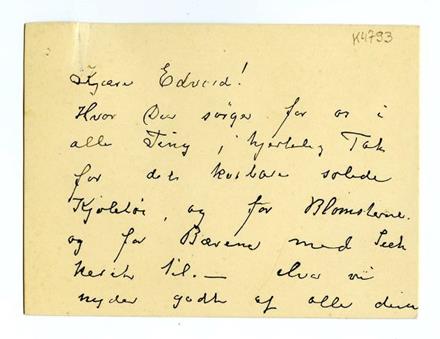 K4793
Kjære Edvard!
Hvor Du sørger for os i
alle Ting, hjertelig Tak
for det kostbare solide
Kjoletøi, og for Blomsterne.
og for Bærene med
til. — vi
nyder godt af alle dine